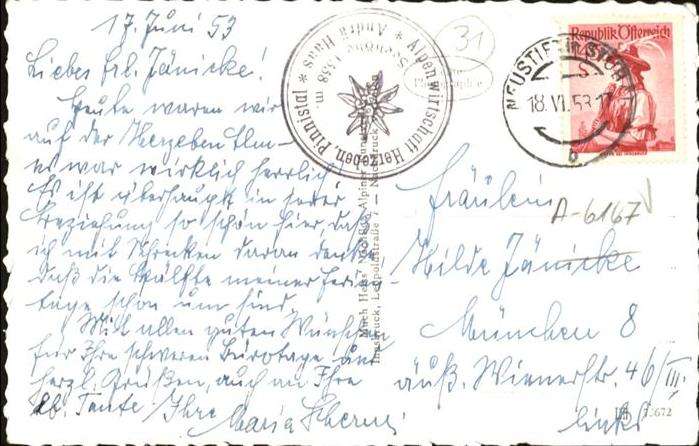 17. Juni 53
Liebes Frl. Jänicke!
Heute waren wir
auf der Herzeben Alm-
es war wirklich herrlich!
Es ist überhaupt in jeder
Beziehung so schön hier daß
ich mit Schrecken daran denke
daß die Hälfte meiner Ferien-
tage schon um sind.
Mit allen guten Wünschen
für Ihre schweren Bürotage und
herzl. Grüßen, auch an Ihre
lb. Tante, Ihre
Maria
Alpenwirtschaft Herzeben, Pinnistal * Andrä Haas *
Seehöhe 1338 m.
31
Republik Österreich
NEUSTIFT IM STUB
18.VI.53-1
b
Innsbruck, Leopoldstraße 7 — Nachdruck
Fräulein
A-6167
Hilde Jänicke
München 8
äuß. Wienerstr. 46/III.
links
672